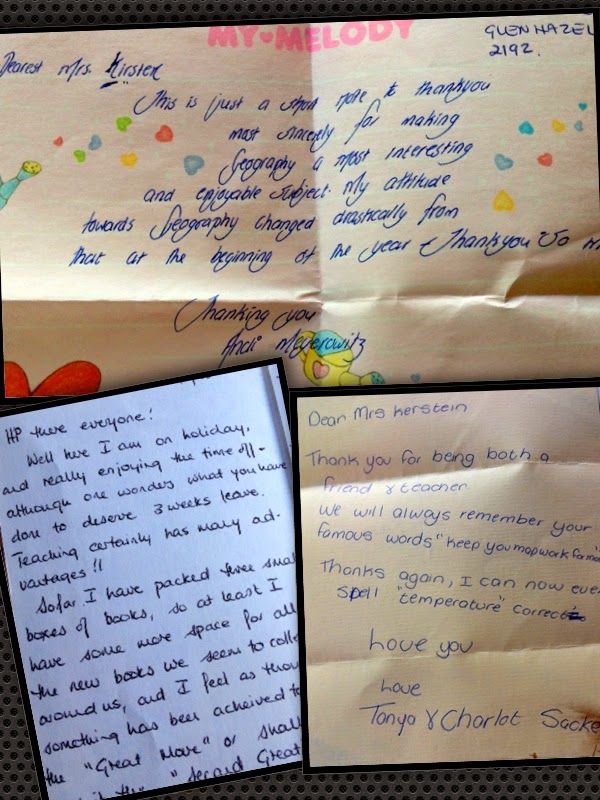 MY MELODY
GLENHAZEL
2192.
Dearest Mrs. Kirsten
This is just a short note to thankyou
most sincerely for making
Geography a most interesting
and enjoyable subject. My attitude
towards Geography changed drastically from
that at the beginning of the year & Thankyou So
Thanking you
Andi Meyerowitz
Hi there everyone!
Well here I am on holiday,
and really enjoying the time off -
although one wonders what you have
done to deserve 3 weeks leave.
Teaching certainly has many ad-
vantages!!
Sofar I have packed three small
boxes of books, so at least I
have some more space for all
the new books we seem to colle
around us, and I feel as thou
something has been acheived to
the "Great Move" or shall
the "Second Great
Dear Mrs Kerstein
Thank you for being both a
friend & teacher
We will always remember your
famous words "keep you mapwork for
Thanks again, I can now eve
spell "temperature" correct
Love you
Love
Tanya & Charlot Sacke